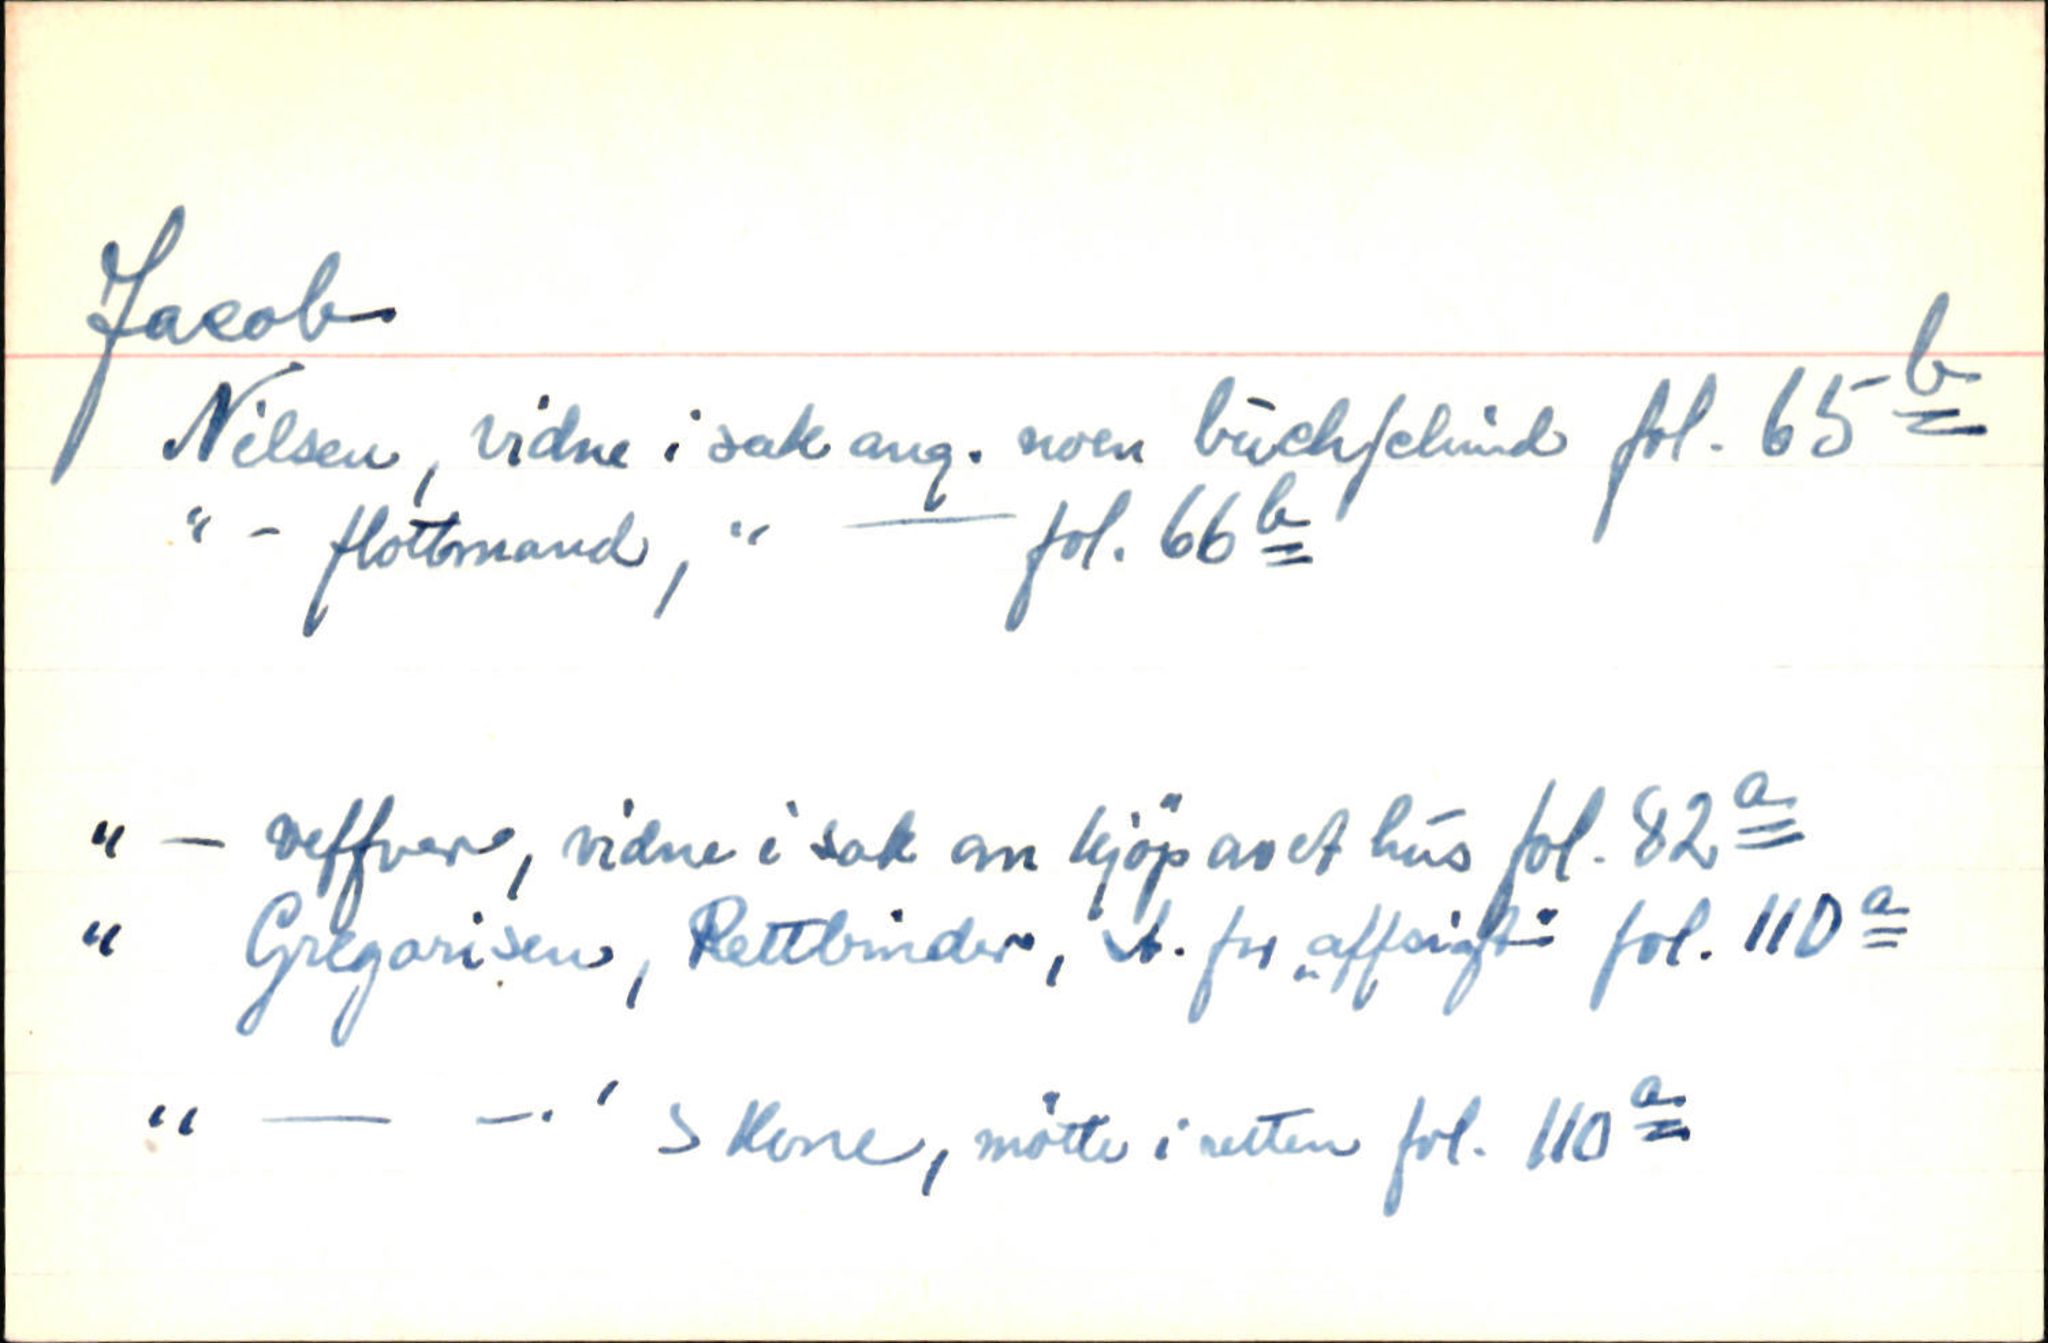 Jacob
Nilsen, vidne i sak ang. noen buchschind fol. 65 b
" - flottmand, " — fol. 66 b
" — veffver, vidne i sak om kjöp av et hus fol. 82 a
" Gregorisen, Rettbinder, st. for „affsigt" fol. 110 a
" — —. ' s Kone, mötte i retten fol. 110 a